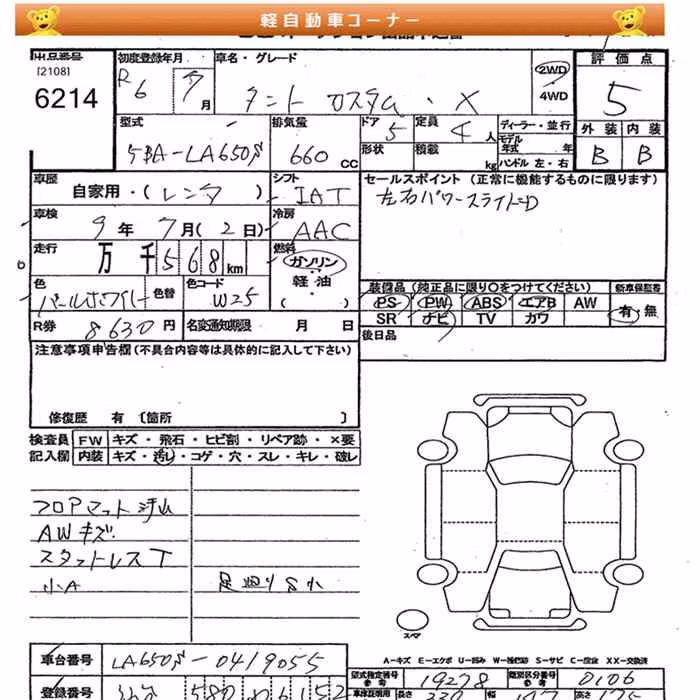 軽自動車コーナー
出品番号
[2108]
6214
初度登録年月
R6 7月
車名・グレード
タント カスタム・X
2WD
4WD
評価点
5
外装 内装
B B
型式
5BA-LA650S
排気量
660 CC
ドア
5
形状
定員
4人
積載
kg
ディーラー・並行
モデル年式 年
ハンドル 左・右
車歴
自家用・(レンタ)
シフト
IAT
車検
9年7月(2日)
冷房
AAC
走行
万 千 568 km
燃料
ガソリン
軽・油
( )
色
パールホワイト
色替
色コード
W25
R券 8630円
名変通知期限 月 日
セールスポイント (正常に機能するものに限ります)
左右パワースライドD
装備品 (純正品に限り○をつけてください)
新車保証書
PS PW ABS エアB AW
SR ナビ TV カワ
有・無
後日品
注意事項申告欄(不具合内容等は具体的に記入して下さい)
修復歴 有 〔箇所 〕
検査員
記入欄
FW キズ・飛石・ヒビ割・リペア跡・×要
内装 キズ・汚し・コゲ・穴・スレ・キレ・破レ
フロアマット汚れ
AWキズ
スタットレスT
小A
足廻りS小
スペア
A-キズ E-エクボ U-凹み W-補修跡 S-サビ C-腐食 XX-交換済
車台番号 LA650S-0419055
型式指定番号
参考
19278
類別区分番号
参考
0106
登録番号
580
車検証明用
長さ
幅
高さ